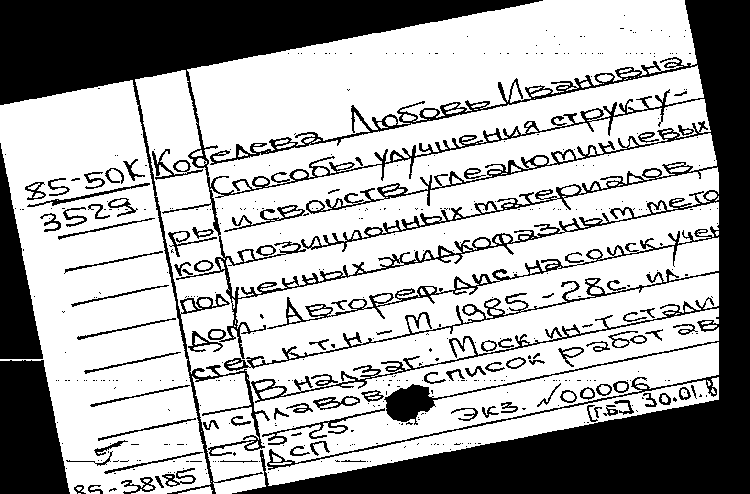 Кобелева, Любовь Ивановна.
85-50К
3529
Способы улучшения структу-
ры и свойств углеалюминиевых
композиционных материалов,
полученных жидкофазным мето
дом: Автореф. дис. на соиск. учен
степ. к.т.н. - М., 1985. - 28с., ил.
В надзаг.: Моск. ин-т стали
и сплавов. список работ ав
с. 23-25.
экз. №00006
ДСП
[ГБ] 30.01.8
85-38185